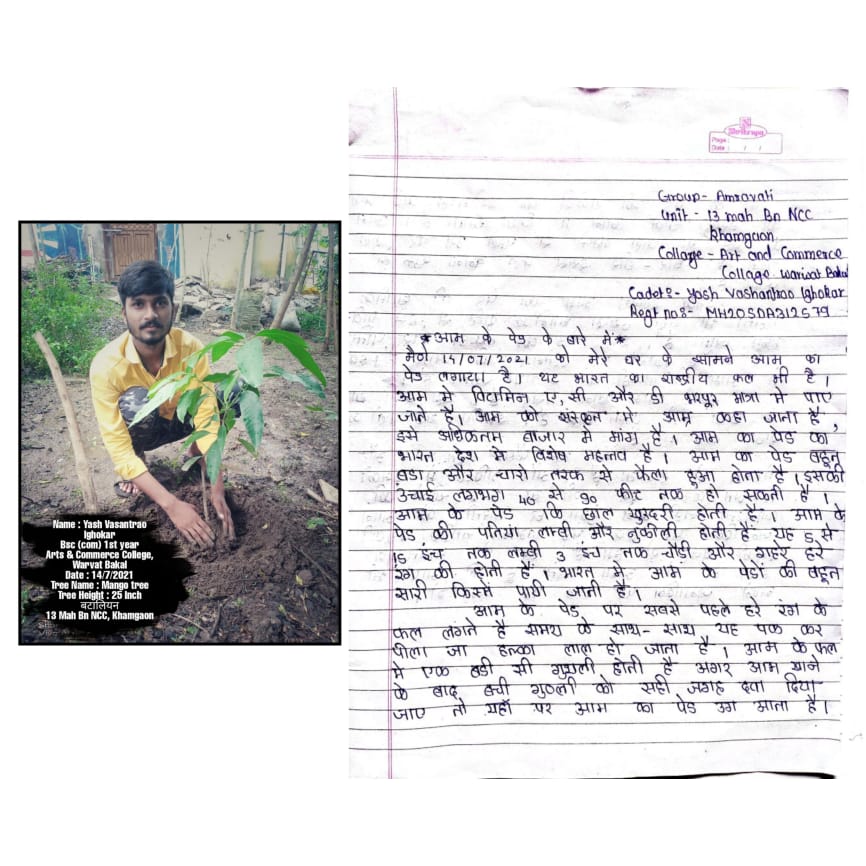 Name : Yash Vasantrao
Ighokar
Bsc (com) 1st year
Arts & Commerce College,
Warvat Bakal
Date : 14/7/2021
Tree Name : Mango tree
Tree Height : 25 Inch
बटालियन
13 Mah Bn NCC, Khamgaon
Page
Date : / /
Group - Amravati
Unit - 13 mah Bn NCC
Khamgaon
Collage - Art and Commerce
Collage warwat Bakal
Cadet :- Yash Vashantrao Ighokar
Regt no :- MH20SDA312579
* आम के पेड के बारे में *
मैने 14/07/2021 को मेरे घर के सामने आम का
पेड लगाया है। यह भारत का राष्ट्रीय फल भी है।
आम मे विटामिन ए, सी और डी भरपूर मात्रा मे पाए
जाते है। आम को संस्कृत मे आम्र कहा जाता है,
इसे अधिकतम बाजार मे मांग है। आम का पेड का
भारत देश मे विशेष महत्व है। आम का पेड बहुत
बडा और चारो तरफ से फैला हुआ होता है। इसकी
उचाई लगभग 40 से 90 फीट तक हो सकती है।
आम के पेड कि छाल खुरदरी होती है। आम के
पेड की पतियां लम्बी और नुकीली होती है यह 5 से
15 इंच तक लम्बी 3 इंच तक चौडी और गहरे हरे
रंग की होती है। भारत मे आम के पेडों की बहुत
सारी किस्में पायी जाती है।
आम के पेड पर सबसे पहले हरे रंग के
फल लगते है समय के साथ-साथ यह पक कर
पीला जा हल्का लाल हो जाता है। आम के फल
मे एक बडी सी गुठली होती है अगर आम खाने
के बाद बची गुठली को सही जगह दबा दिया
जाए तो यहाँ पर आम का पेड उग आता है।